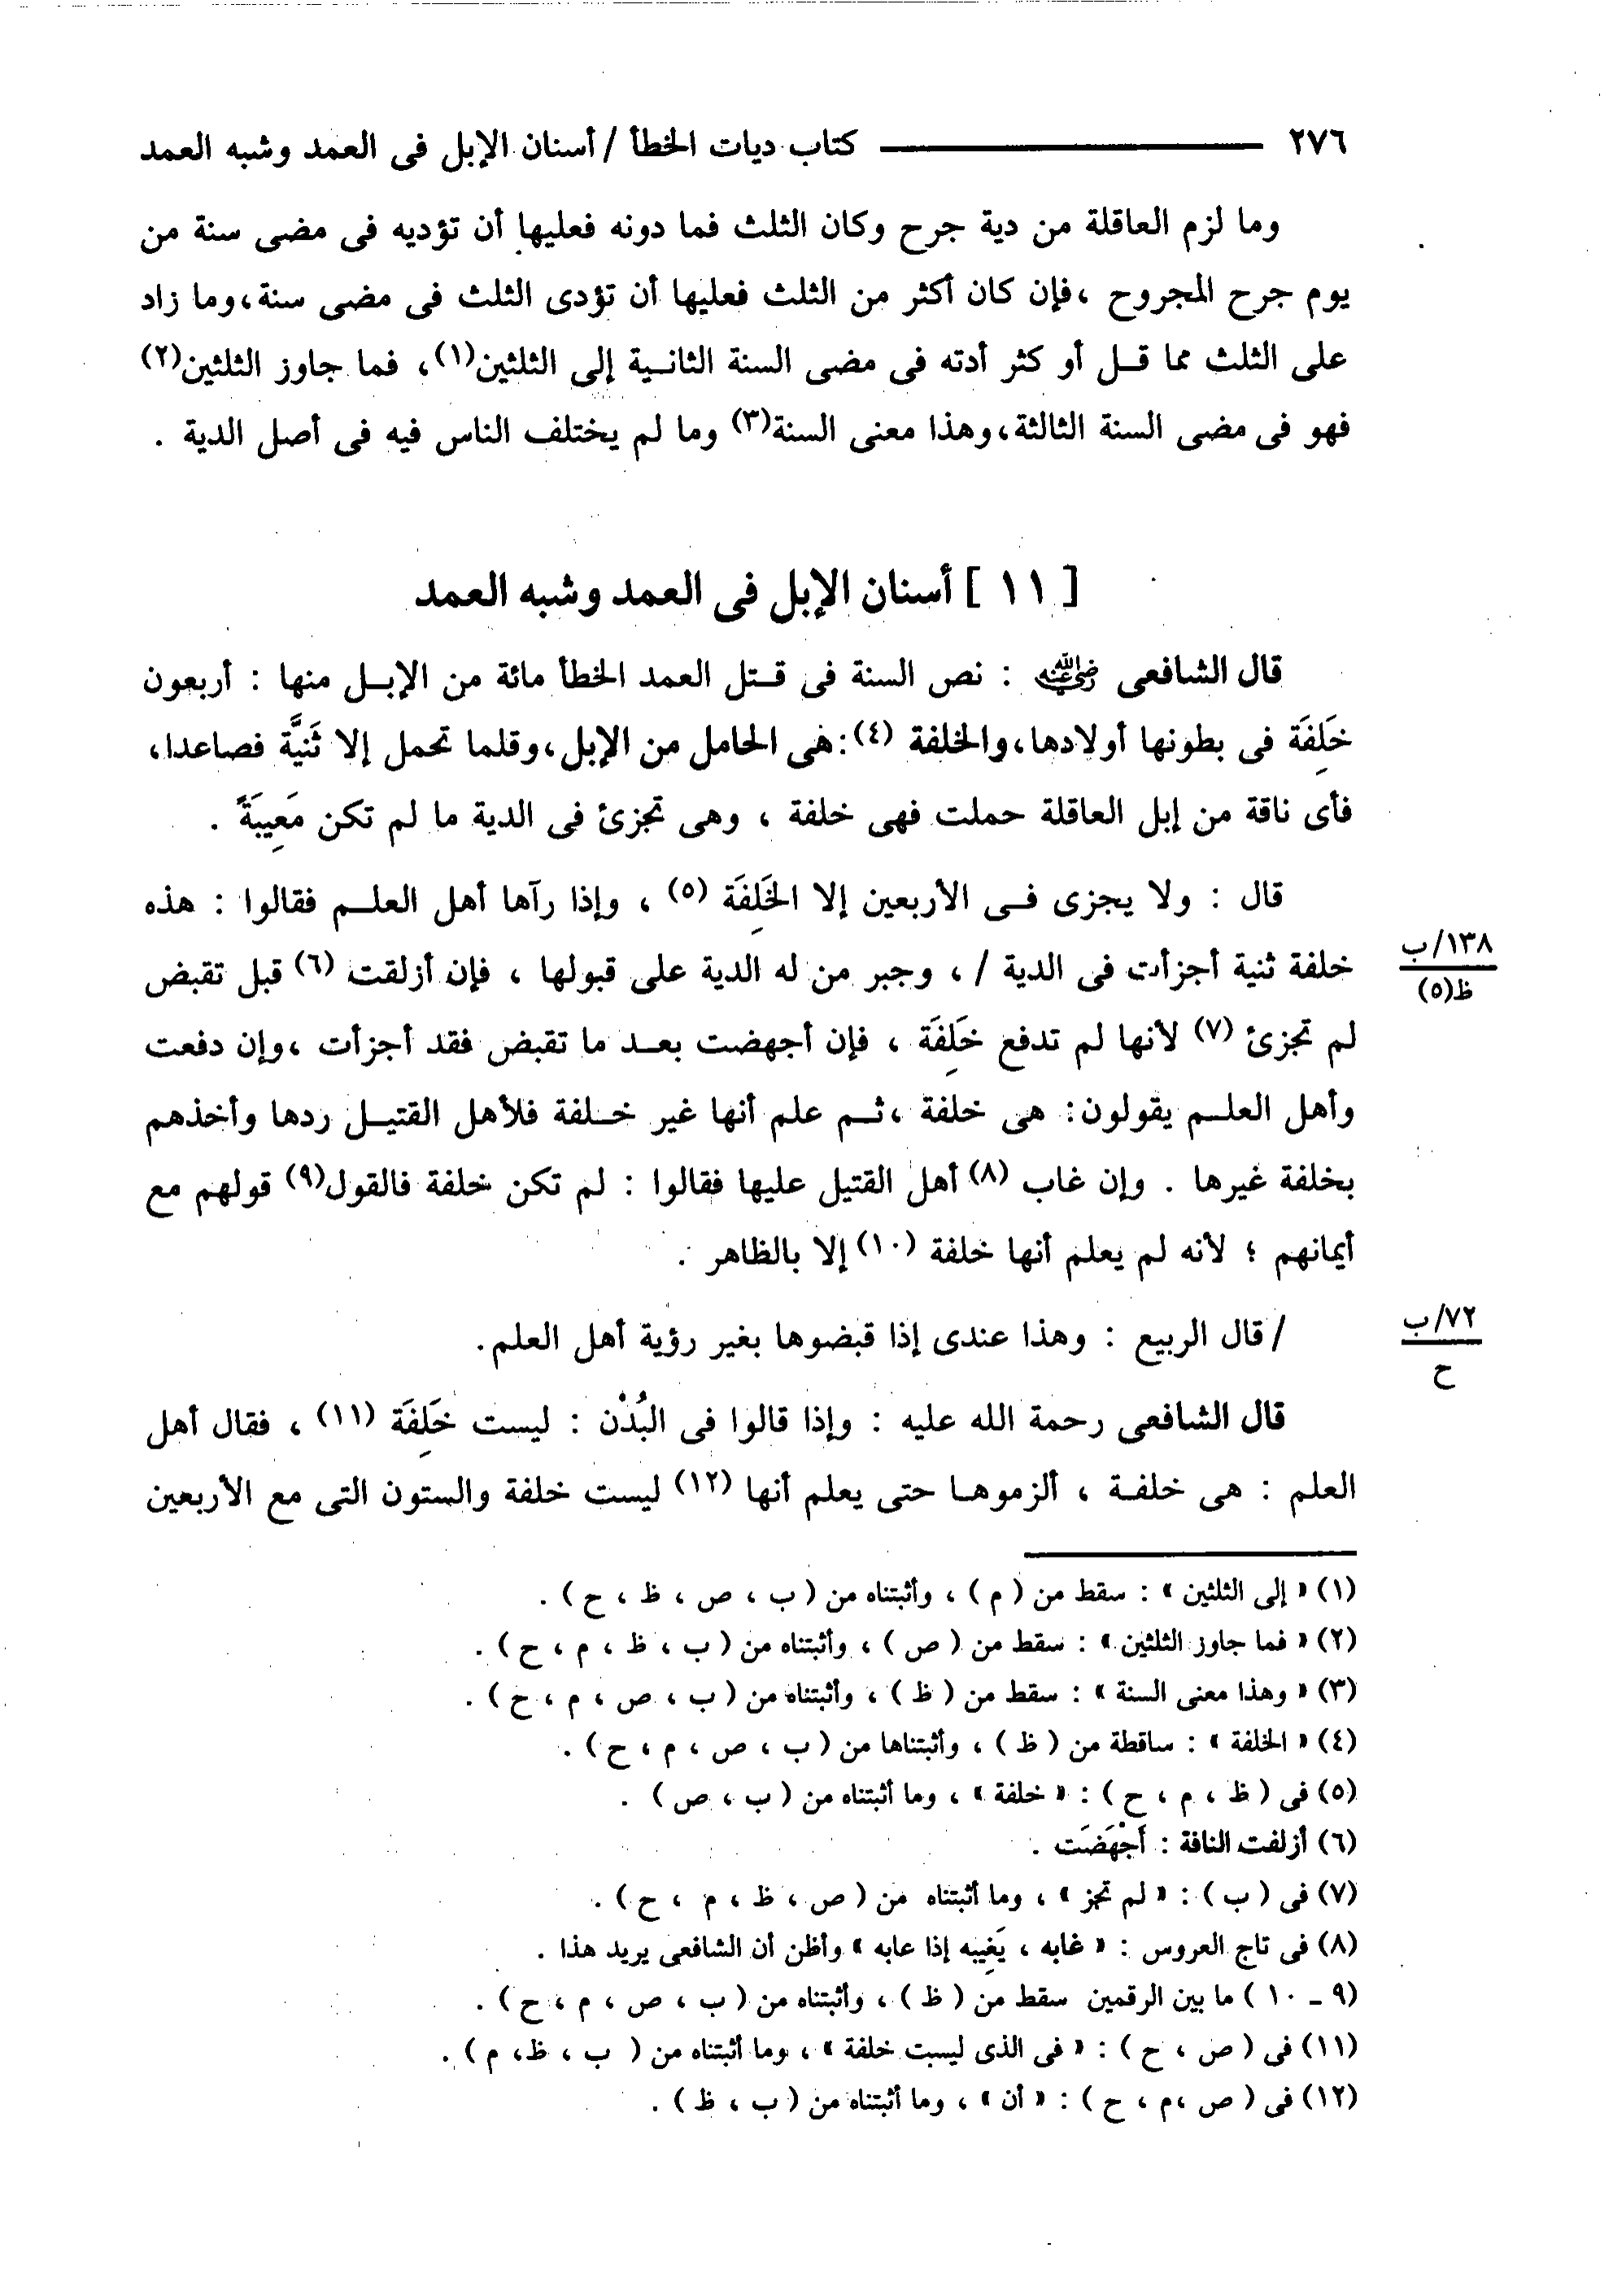 ٢٧٦ كتاب ديات الخطأ / أسنان الإبل فى العمد وشبه العمد
وما لزم العاقلة من دية جرح وكان الثلث فما دونه فعليها أن تؤديه فى مضى سنة من
يوم جرح المجروح ،فإن كان أكثر من الثلث فعليها أن تؤدى الثلث فى مضى سنة،وما زاد
على الثلث مما قل أو كثر أدته فى مضى السنة الثانية إلى الثلثين(١)، فما جاوز الثلثين(٢)
فهو فى مضى السنة الثالثة،وهذا معنى السنة(٣) وما لم يختلف الناس فيه فى أصل الدية .
[ ١١ ] أسنان الإبل فى العمد وشبه العمد
قال الشافعى رضي الله عنه : نص السنة فى قتل العمد الخطأ مائة من الإبل منها : أربعون
خَلِفَة فى بطونها أولادها،والخلفة (٤):هى الحامل من الإبل،وقلما تحمل إلا ثَنيَّة فصاعدا،
فأى ناقة من إبل العاقلة حملت فهى خلفة ، وهى تجزئ فى الدية ما لم تكن مَعِيبَةً .
قال : ولا يجزى فى الأربعين إلا الخَلِفَة (٥) ، وإذا رآها أهل العلم فقالوا : هذه
١٣٨/ب
ظ(٥)
خلفة ثنية أجزأت فى الدية / ، وجبر من له الدية على قبولها ، فإن أزلقت (٦) قبل تقبض
لم تجزئ (٧) لأنها لم تدفع خَلِفَة ، فإن أجهضت بعد ما تقبض فقد أجزأت ،وإن دفعت
وأهل العلم يقولون: هى خلفة ،ثم علم أنها غير خلفة فلأهل القتيل ردها وأخذهم
بخلفة غيرها . وإن غاب (٨) أهل القتيل عليها فقالوا : لم تكن خلفة فالقول(٩) قولهم مع
أيمانهم ؛ لأنه لم يعلم أنها خلفة (١٠) إلا بالظاهر .
٧٢/ب
ح
/ قال الربيع : وهذا عندى إذا قبضوها بغير رؤية أهل العلم.
قال الشافعى رحمة الله عليه : وإذا قالوا فى البُدْن : ليست خَلِفَة (١١) ، فقال أهل
العلم : هى خلفة ، ألزموها حتى يعلم أنها (١٢) ليست خلفة والستون التى مع الأربعين
(١) « إلى الثلثين » : سقط من ( م ) ، وأثبتناه من ( ب ، ص ، ظ ، ح ) .
(٢) « فما جاوز الثلثين » : سقط من ( ص ) ، وأثبتناه من ( ب ، ظ ، م ، ح ) .
(٣) « وهذا معنى السنة » : سقط من ( ظ ) ، وأثبتناه من ( ب ، ص ، م ، ح ) .
(٤) « الخلفة » : ساقطة من ( ظ ) ، وأثبتناها من ( ب ، ص ، م ، ح ) .
(٥) فى ( ظ ، م ، ح ) : « خلفة » ، وما أثبتناه من ( ب ، ص ) .
(٦) أزلفت النافة : أَجْهَضَت .
(٧) فى ( ب ) : « لم تجز » ، وما أثبتناه من ( ص ، ظ ، م ، ح ) .
(٨) فى تاج العروس : « غابه ، يَغِيبه إذا عابه » وأظن أن الشافعى يريد هذا .
(٩ ـ ١٠ ) ما بين الرقمين سقط من ( ظ ) ، وأثبتناه من ( ب ، ص ، م ، ح ) .
(١١) فى ( ص ، ح ) : « فى الذى ليست خلفة » ، وما أثبتناه من ( ب ، ظ، م ) .
(١٢) فى ( ص ،م ، ح ) : « أن » ، وما أثبتناه من ( ب ، ظ ) .